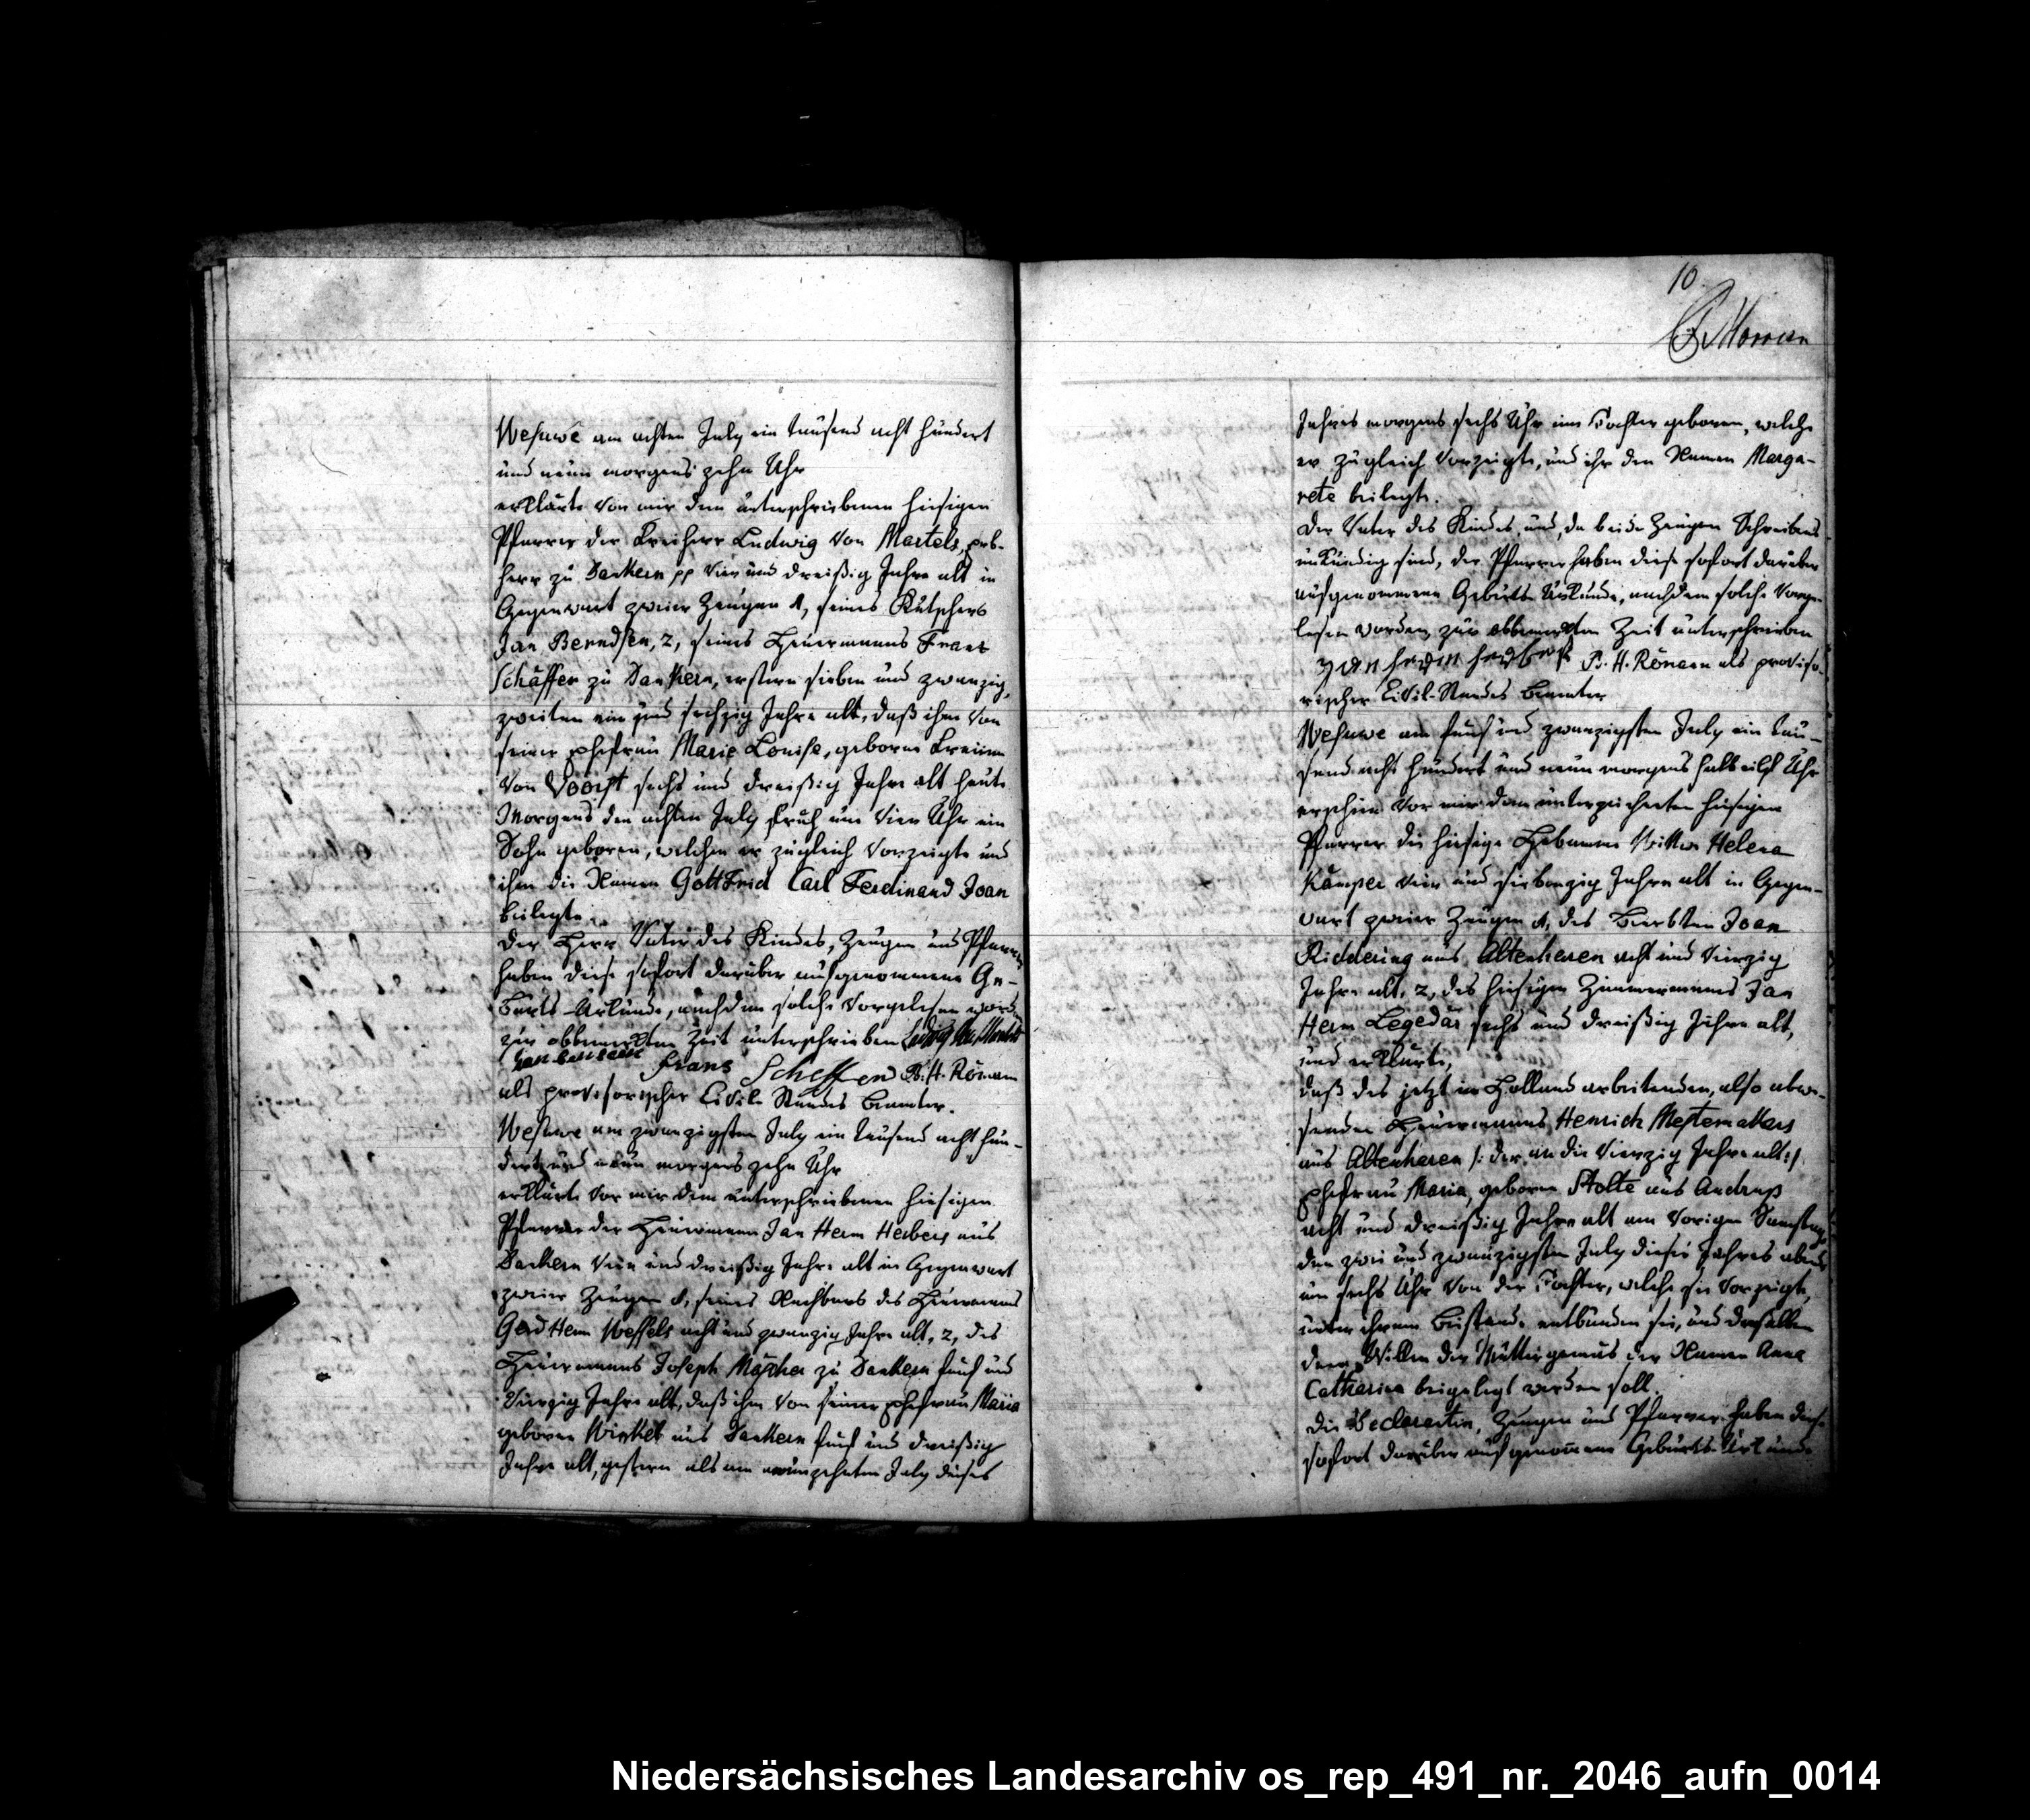 Wesuwe am achten July ein tausend acht hundert
und neun morgens zehn Uhr
erklärte vor mir dem unterschriebenen hiesigen
Pfarrer der Freiherr Ludwig von Martels, Erb-
herr zu Dankern pp vier und dreißig Jahre alt in
Gegenwart zweier Zeugen 1, seines Kutschers
Jan Berndsen, 2, seines Heuermanns Franz
Schäffer zu Dankern, erstern sieben und zwanzig,
zweiten ein und sechzig Jahre alt, daß ihm von
seiner Ehefrau Marie Louise, geborne Freiinn
von Voorst sechs und dreißig Jahre alt heute
Morgens den achten July früh um vier Uhr ein
Sohn geboren, welchen er zugleich vorzeigte und
ihm die Namen Gottfried Carl Ferdinand Joan
beilegte.
Der Herr Vater des Kindes, Zeugen und Pfarrer
haben diese sofort darüber aufgenommene Ge-
burts-Urkunde, nachdem solche vorgelesen worden
zur obbemerkten Zeit unterschrieben Ludwig v. Martels
Frans Scheffer B. H. Römann
als provisorischer Civil-Standes Beamter.
Wesuwe am zwanzigsten July ein tausend acht hun-
dert und neun morgens zehn Uhr
erklärte vor mir dem unterschriebenen hiesigen
Pfarrer der Heuermann Jan Herm Herbers aus
Dankern vier und dreißig Jahre alt in Gegenwart
zweier Zeugen 1, seines Nachbars des Heuermanns
Gerd Herm Wessels acht und zwanzig Jahre alt, 2, des
Heuermanns Joseph zu Dankern fünf und
vierzig Jahre alt, daß ihm von seiner Ehefrau Maria
geborne Winkel aus Dankern fünf und dreißig
Jahre alt, gestern als am neunzehnten July dieses
10
Jahres morgens sechs Uhr eine Tochter geboren, welche
er zugleich vorzeigte, und ihr den Namen Marga-
rete beilegte.
Der Vater des Kindes und, da beide Zeugen Schreibens
unkundig sind, der Pfarrer haben diese sofort darüber
aufgenommene Geburts Urkunde, nachdem solche vorge-
lesen worden, zur obbemerkten Zeit unterschrieben
B. H. Römann als proviso-
rischer Civil-Standes Beamter
Wesuwe am fünf und zwanzigsten July ein tau-
send acht hundert und neun morgens halb eilf Uhr
erschien vor mir dem unterzeichneten hiesigen
Pfarrer die hiesige Hebamme Wittwe Helena
Kämper vier und siebenzig Jahre alt in Gegen-
wart zweier Zeugen 1, des Joan
Riddering aus Altenharen acht und vierzig
Jahre alt, 2, des hiesigen Zimmermanns Jan
Herm Legedar sechs und dreißig Jahre alt,
und erklärte,
daß des jetzt in Holland arbeitenden, also abwe-
senden Heuermanns Henrich Mestemakers
aus Altenharen /: der an die vierzig Jahre alt :/
Ehefrau Maria, geborne Stolte aus Andrup
acht und dreißig Jahre alt am vorigen Samstag,
den zwei und zwanzigsten July dieses Jahres abends
um sechs Uhr von der Tochter, welche sie vorzeigte,
unter ihrem Beistande entbunden sei, und derselben
dem Willen der Mutter gemäs der Namen Anna
Catharina beigelegt werden soll.
Die Declarantin, Zeugen und Pfarrer haben diese
sofort darüber aufgenommene Geburts Urkunde
Niedersächsisches Landesarchiv os_rep_491_nr._2046_aufn_0014